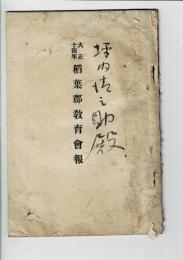 坪内清之助殿
大正十四年
稲葉郡教育會報